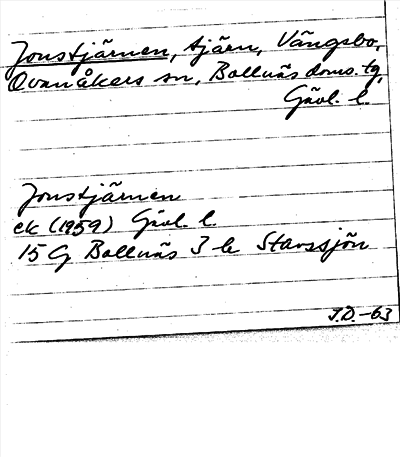 Jonstjärnen, tjärn, Vängsbo,
Ovanåkers sn, Bollnäs doms. tg,
Gävl. l.
Jonstjärnen
ek (1959) Gävl. l.
15 G Bollnäs 3 b Stavssjön
J.D. -63